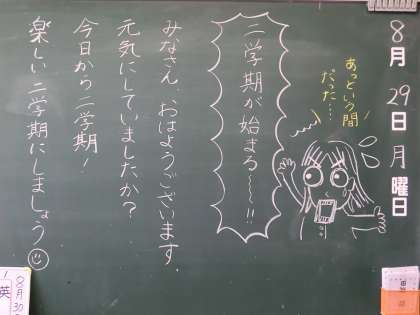 8月29日月曜日
あっという間
だった…
二学期が始まる〜〜!!
みなさん、おはようございます。
元気にしていましたか?
今日から二学期!
楽しい二学期にしましょう
英
8月30